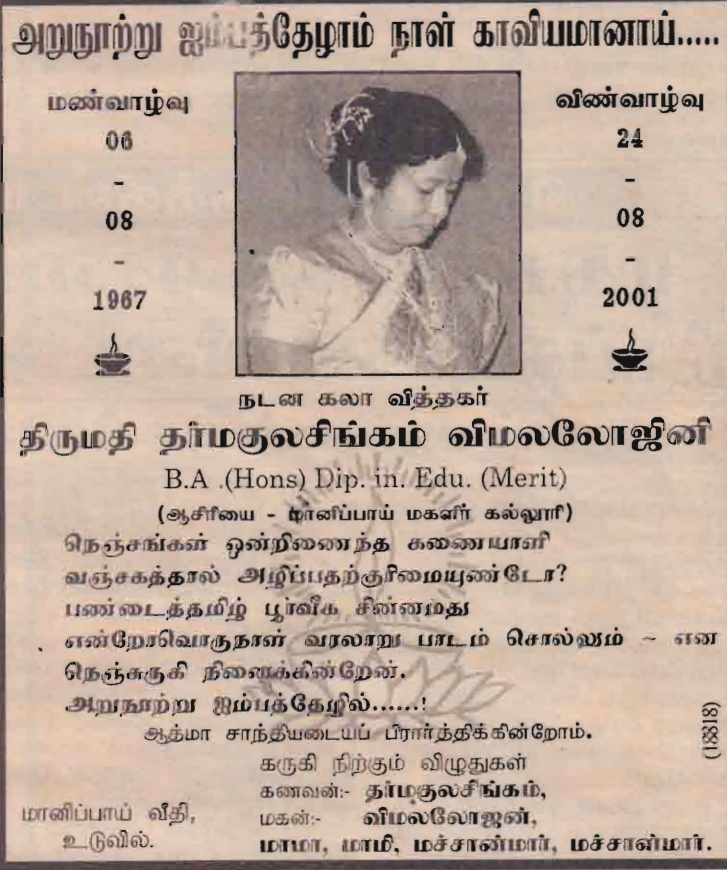 அறுநூற்று ஐம்பத்தேழாம் நாள் காவியமானாய்.....
மண்வாழ்வு
06
-
08
-
1967
விண்வாழ்வு
24
-
08
-
2001
நடன கலா வித்தகர்
திருமதி தர்மகுலசிங்கம் விமலலோஜினி
B.A .(Hons) Dip. in. Edu. (Merit)
(ஆசிரியை - மானிப்பாய் மகளிர் கல்லூரி)
நெஞ்சங்கள் ஒன்றிணைந்த கணையாளி
வஞ்சகத்தால் அழிப்பதற்குரிமையுண்டோ?
பண்டைத்தமிழ் பூர்வீக சின்னமது
என்றோவொருநாள் வரலாறு பாடம் சொல்லும் - என
நெஞ்சுருகி நினைக்கின்றேன்.
அறுநூற்று ஐம்பத்தேழில்......!
ஆத்மா சாந்தியடையப் பிரார்த்திக்கின்றோம்.
கருகி நிற்கும் விழுதுகள்
கணவன்:- தர்மகுலசிங்கம்,
மகன்:- விமலலோஜன்,
மாமா, மாமி, மச்சான்மார், மச்சாள்மார்.
மானிப்பாய் வீதி,
உடுவில்.
(18818)